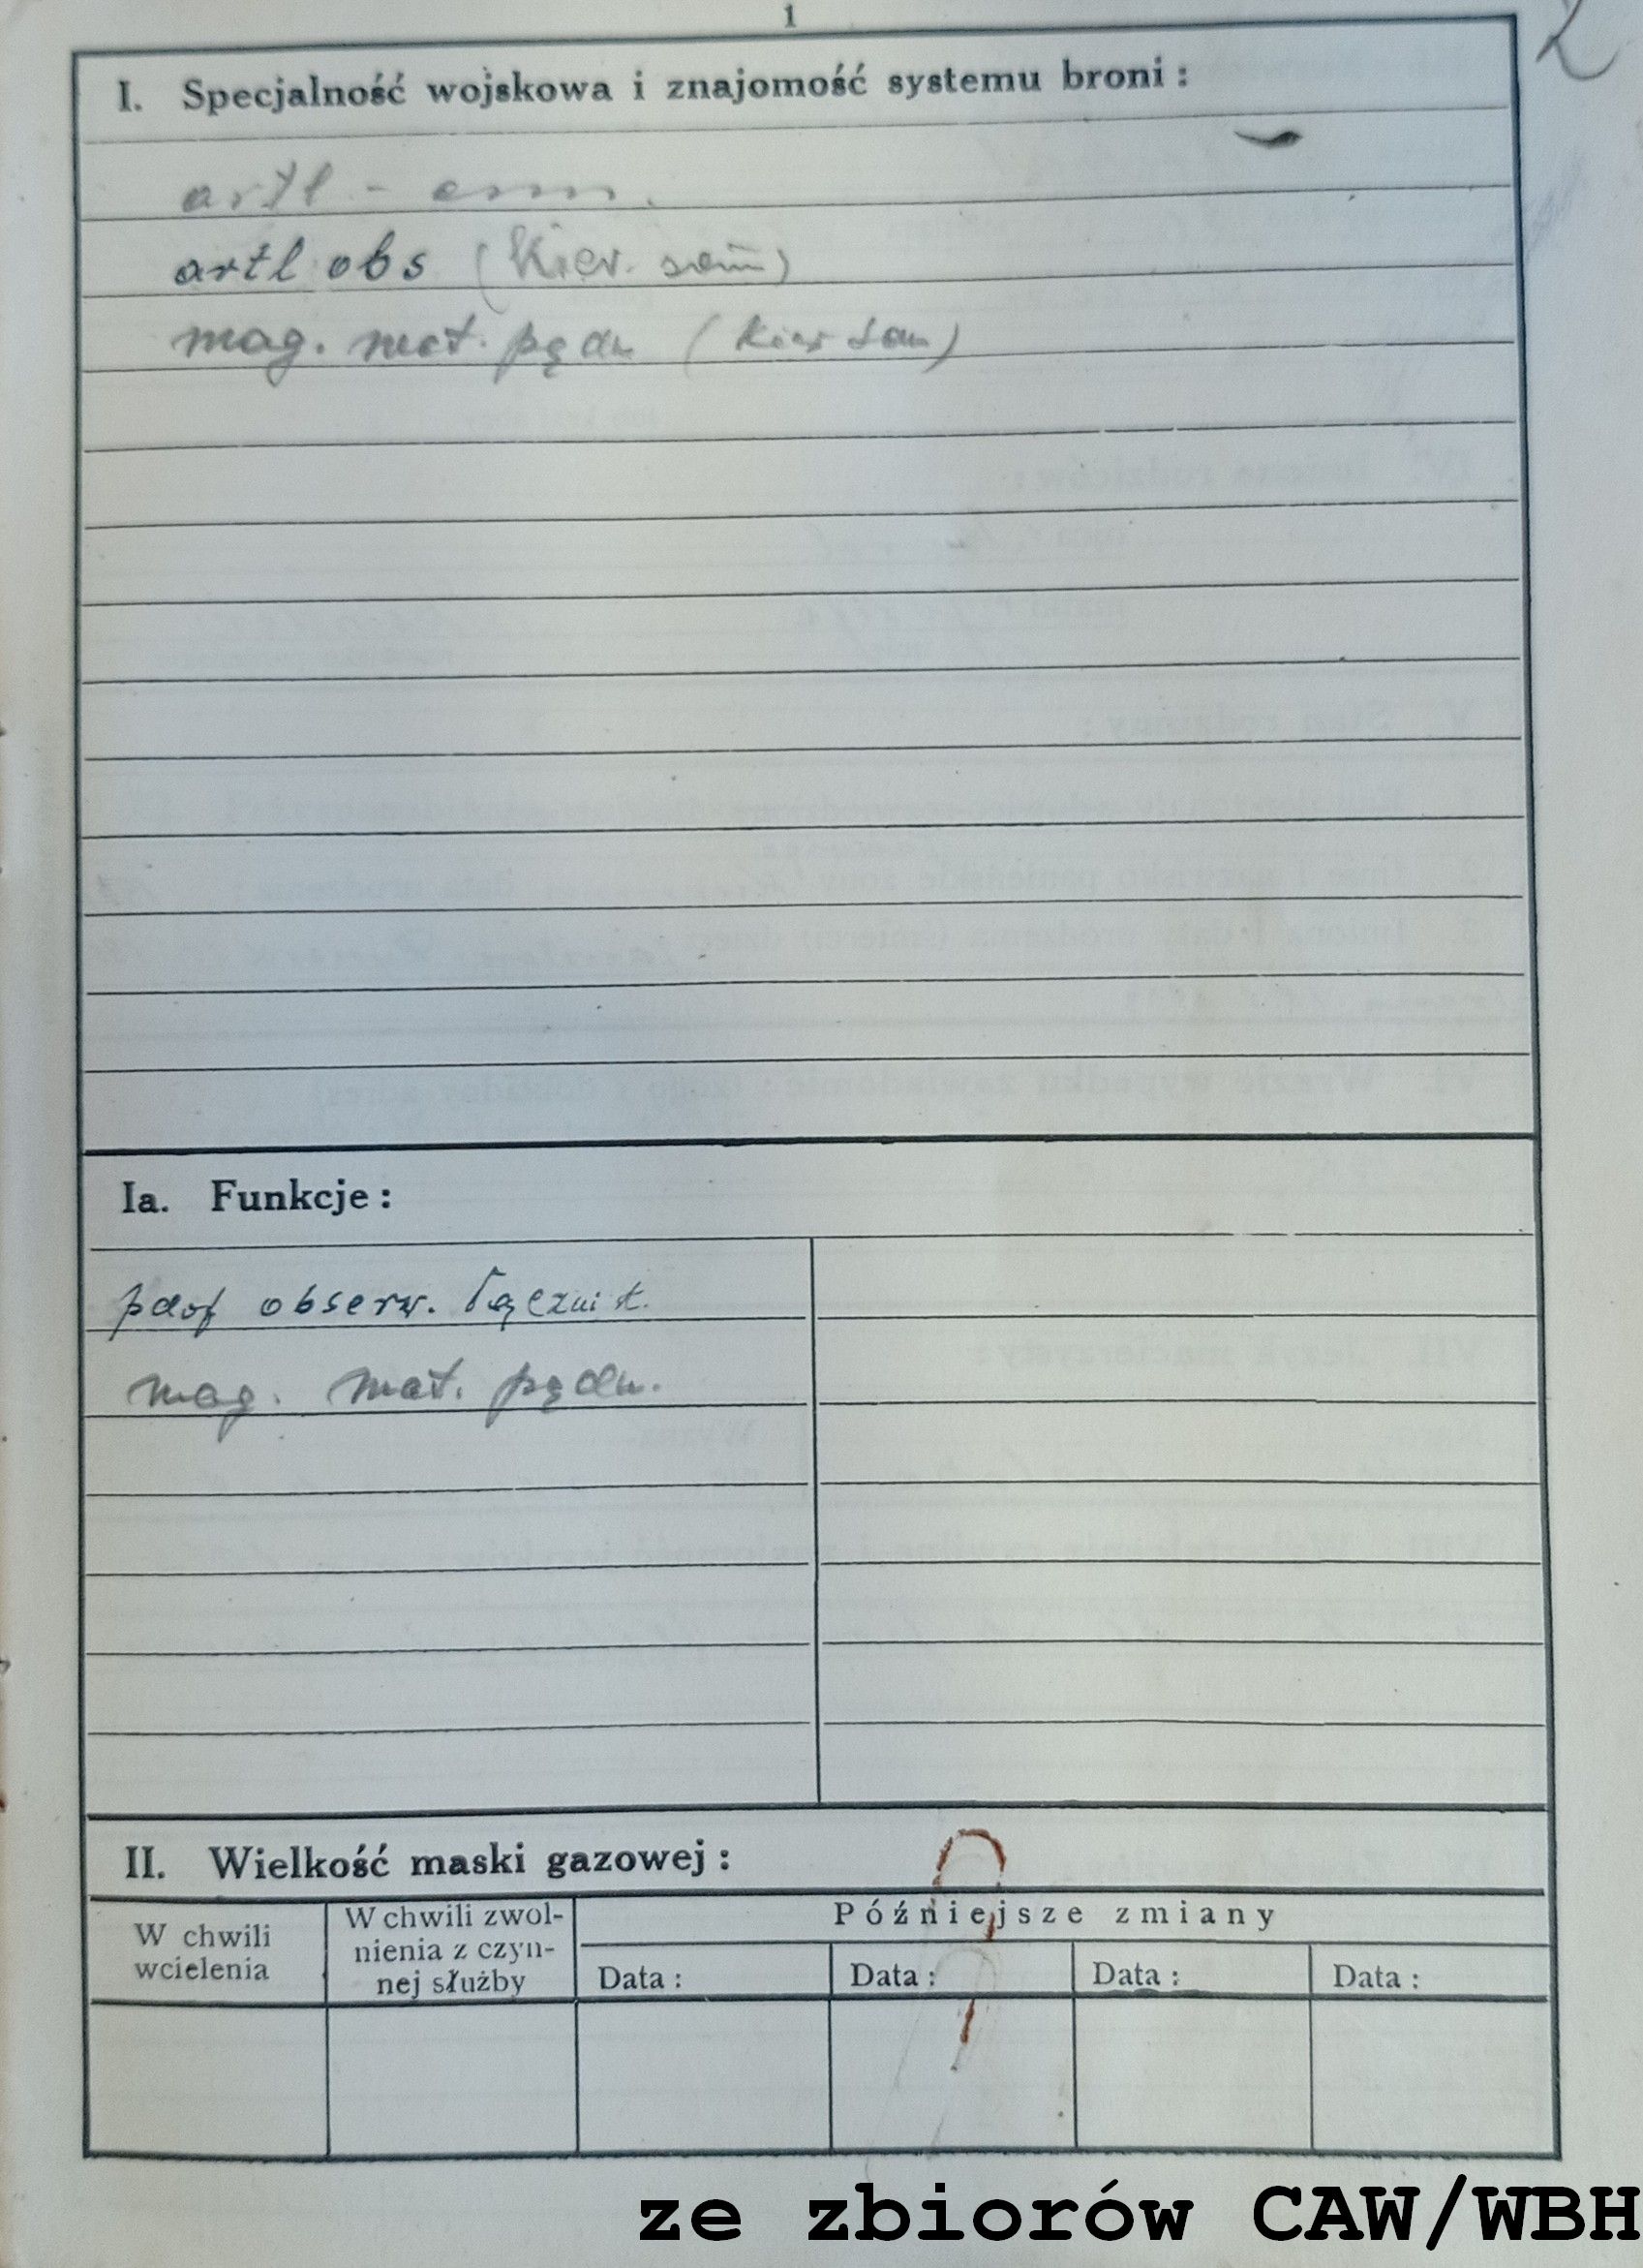 1
2
I. Specjalność wojskowa i znajomość systemu broni :
artl -
artl obs (Kier. sam)
mag. mat. pędn (kier sam)
Ia. Funkcje :
obserw. łącznik.
mag. mat. pędn.
II. Wielkość maski gazowej :
W chwili
wcielenia
W chwili zwol-
nienia z czyn-
nej służby
Późniejsze zmiany
Data : Data : Data : Data :
ze zbiorów CAW/WBH